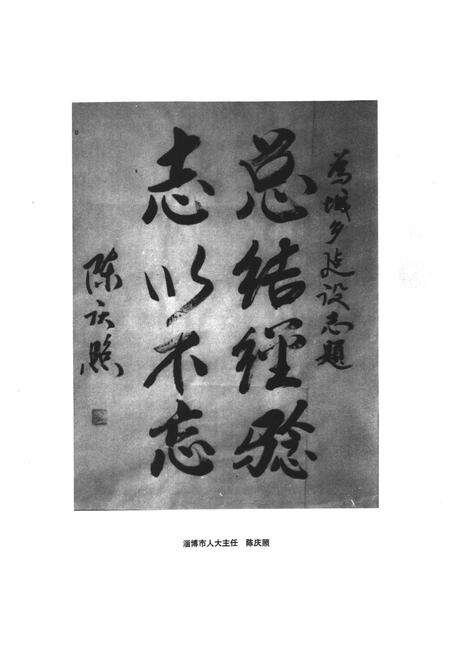 为城乡建设志题
总结经验
志以不忘
陈庆照
淄博市人大主任 陈庆照